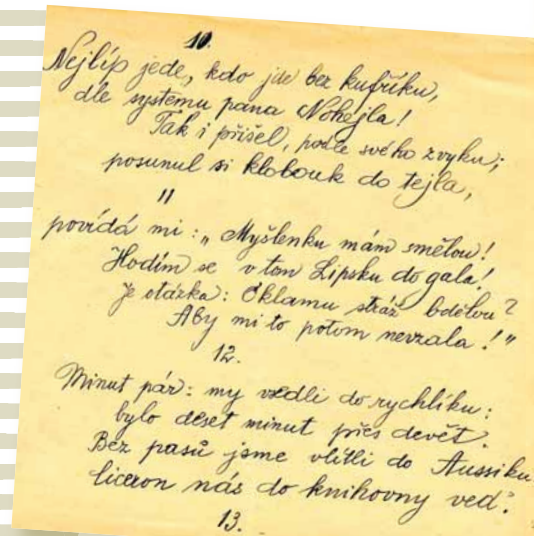 10.
Nejlíp jede, kdo jde bez kufříku,
dle systemu pana Nohejla!
Tak i přišel, podle svého zvyku;
posunul si klobouk do tejla,
11
povídá mi: „Myšlenku mám smělou!
Hodím se v tom Lipsku do gala!
Je otázka: Oklamu stráž bdělou?
Aby mi to potom nevzala!"
12.
Minut pár: my sedli do rychlíku:
bylo deset minut přes devět.
Bez pasů jsme vlítli do Aussiku
ciceron nás do knihovny veď.
13.